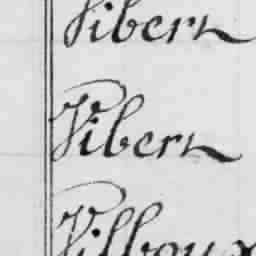 Vibert
Vibert
Vilboux